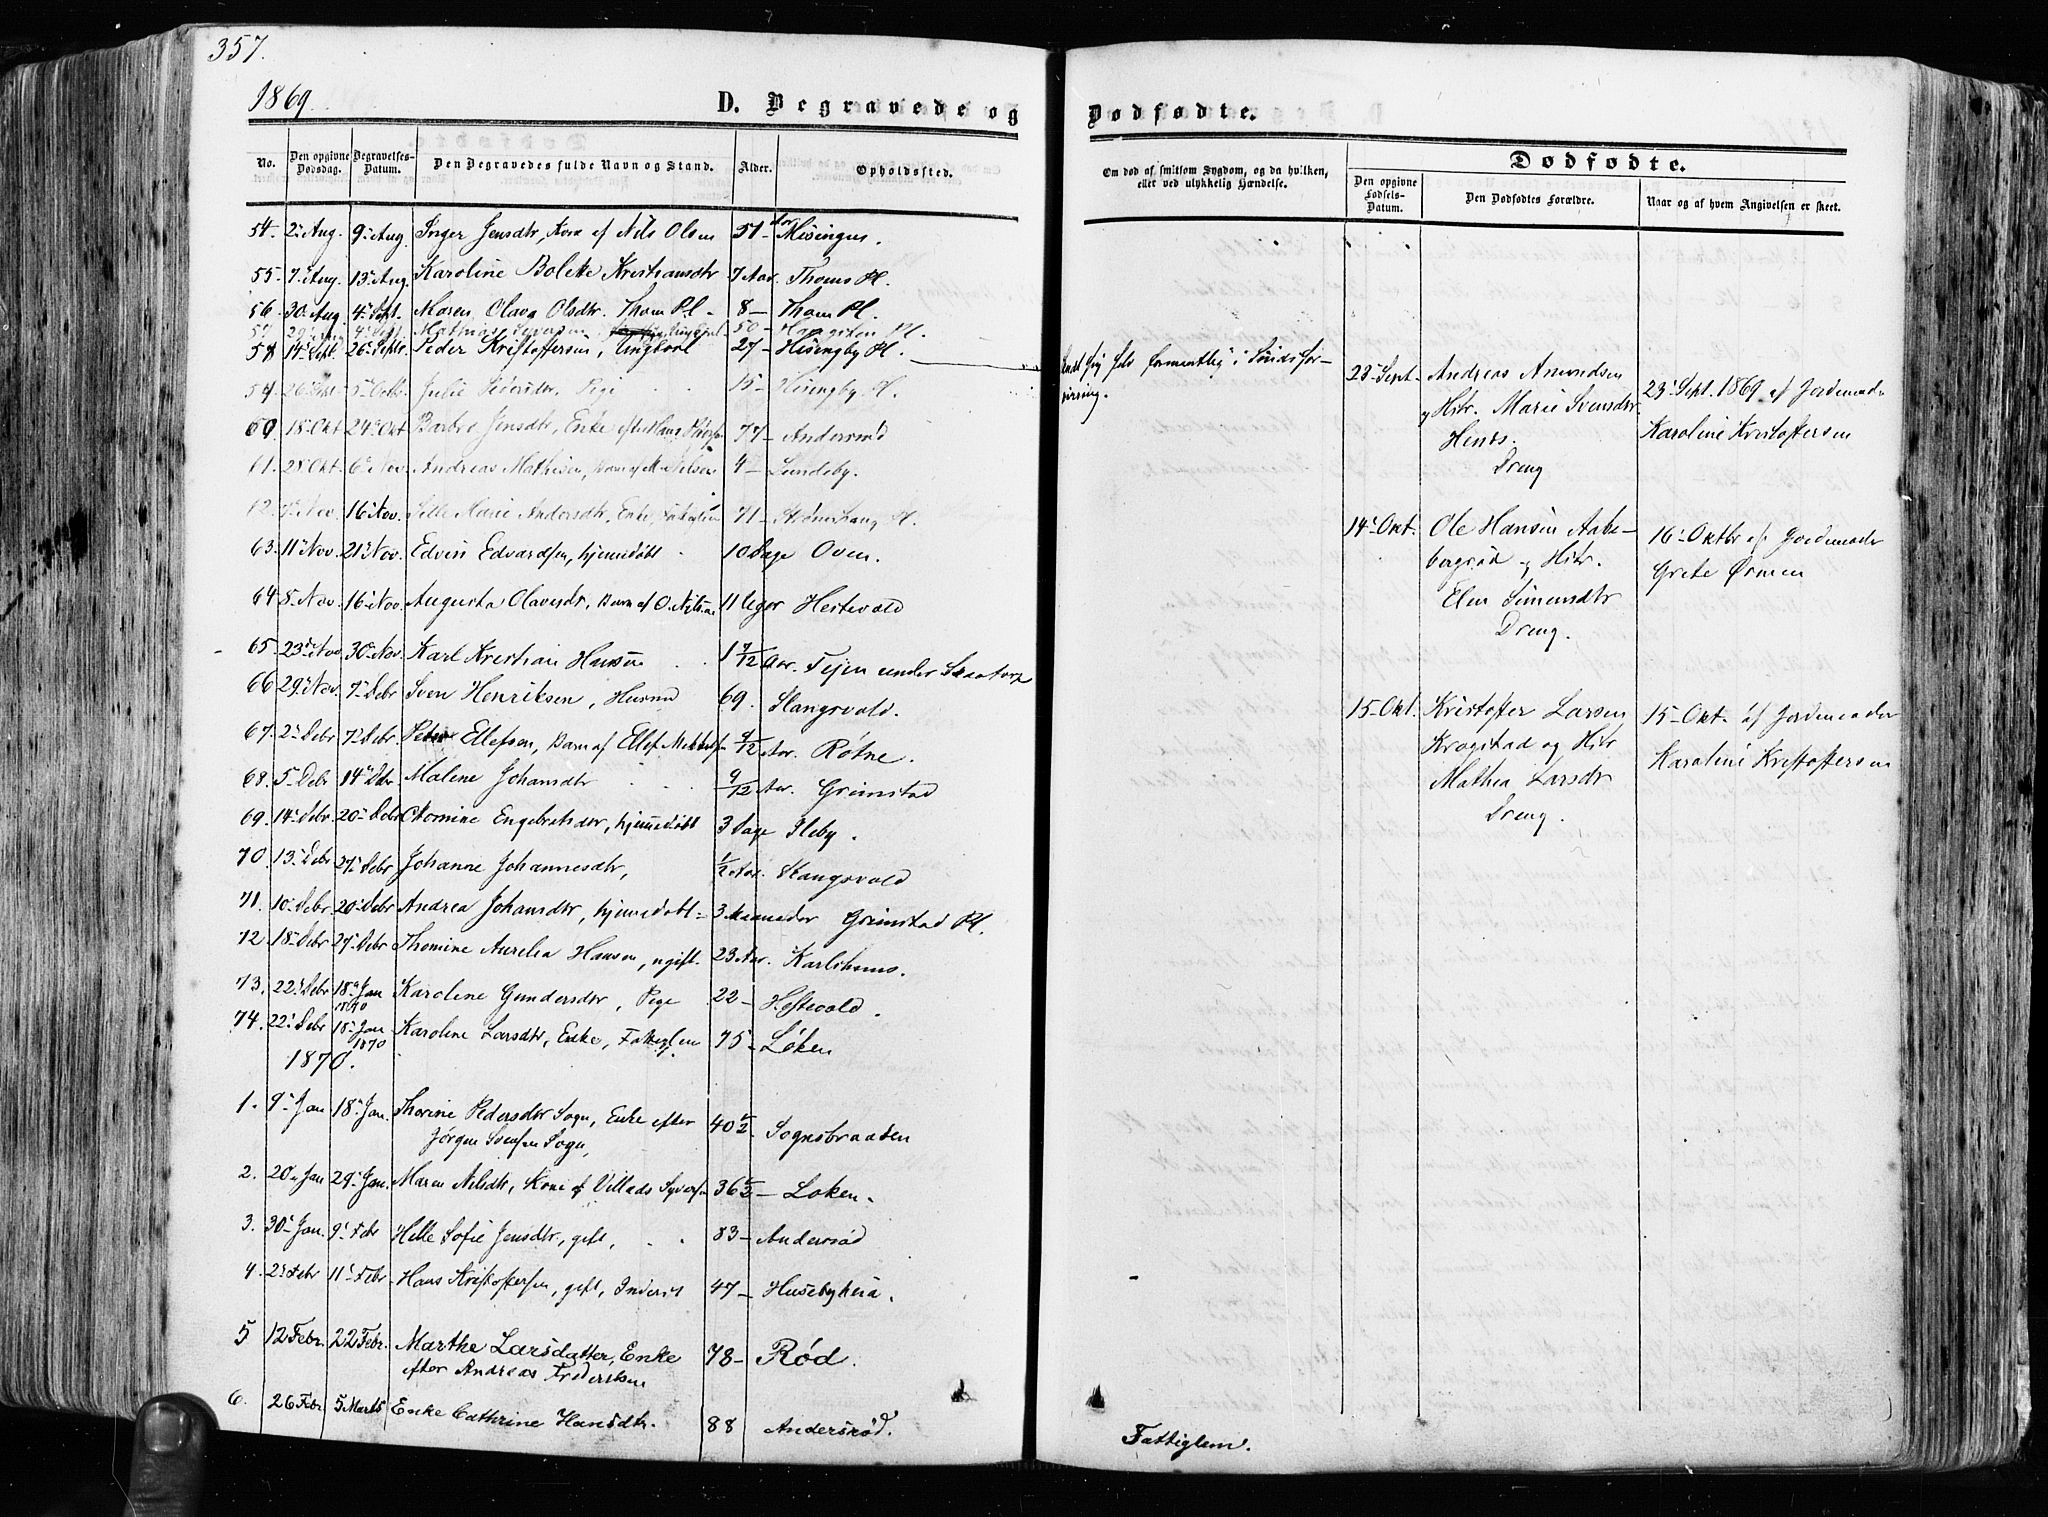 357.
1869.
D. Begravede og
No. Den opgivne Dødsdag. Begravelses-Datum. Den Begravedes fulde Navn og Stand. Alder. Opholdssted.
54. 2 Aug. 9 Aug. Inger Jensdtr, Kone af Nils Olsen 51
55. 7 Aug. 13 Aug. Karoline Kristiansdtr 7 Aar. Thoms Pl.
56. 30 Aug. 4 Sept. Maren Olava Olsdtr. Thom Pl. 8 — Thom Pl.
50
58 14 Sept. 26 Septr. Peder Kristoffersen, 27 — Hisingby Pl.
5 Oktbr. Julie Pige 15 — Hisingby Pl.
60. 18 Okt 24 Okt Jensdtr, Enke efter Hans 77 — Andersrød
61. 28 Okt. 6 Nov. Andreas Mathisen, Barn af M. Nilsen 4 — Sundby.
62. 16 Nov. Marie Andersdtr, Enke, 71 — Pl.
63. 11 Nov. 21 Nov. Edvin Edvardsen, hjemmedøbt 10 Dage Oven.
64. 8 Nov. 16 Nov. Augusta Olavesdtr, Barn af O. Nilsen 11 Uger Hestevold
65. 23 Nov 30 Nov. Karl Kristian Hansen 1 7/12 Aar. Tejen under
66 29 Nov. 7 Debr Sven Henriksen, Husmd 69. Slangsvold.
67. 2 Debr 7 Debr Ellefsen, Barn af Ellef 9/12 Aar. Rotne.
68. 5 Debr 14 Debr Malene Johansdtr 9/12 Aar. Grimstad
69. 14 Debr 20 Debr Engebretsdtr, hjemmedøbt 3 Dage Ileby.
70. 13 Debr 27 Debr Johanne Johannesdtr, 1/2 Aar. Slangsvold
71. 10 Debr 20 Debr Andrea Johansdtr, hjemmedøbt 3 Maaneder Grimstad Pl.
72 18 Debr 27 Debr Thomine Aurelia Hansen, ugift. 23 Aar. Karlshuus.
73. 22 Debr 18 Jan 1870 Karoline Gundersdtr, Pige 22 — Hestevold.
74. 22 Debr 18 Jan 1870 Karoline Larsdtr, Enke, Fattiglem 75 — Løken
1870.
1. 9 Jan 18 Jan. Thorine Pedersdtr Sogn, Enke efter 40 1/2 Sognsbraaten
Jørgen Svensen Sogn,
2. 20 Jan 29 Jan. Maren Nilsdtr, Kone af Villads Syversen 36 1/2 — Løken.
3. 30 Jan. 9 Febr Helle Sofie Jensdtr, gift, 83 — Andersrød
4. 2 Febr 11 Febr Hans Kristoffersen, gift, Inderst 47 — Husebyheia.
5 12 Febr. 22 Febr. Marthe Larsdatter, Enke 78 — Rød.
efter Andreas Frederiksen
6. 26 Febr. 5 Marts Enke Cathrine Hansdtr. 88 Andersrød.
Dødfødte.
Om død af smitsom Sygdom, og da hvilken, eller ved ulykkelig Hændelse.
Dødfødte.
Den opgivne Fødsels-Datum. Den Dødfødtes Forældre. Naar og af hvem Angivelsen er skeet.
formentlig i Sindsfor-
virring.
23 Sept. Andreas Amundsen 23 Sept. 1869 af Jordemoder
og Hstr. Marie Svensdtr. Karoline Kristoffersen
Dreng
14 Okt. Ole Hansen 16 Oktbr af Jordemoder
og Hstr. Grete Ørmen
Elen Simensdtr
Dreng.
15 Okt. Kristoffer Larsen 15 Okt. af Jordemoder
Krogstad og Hstr Karoline Kristoffersen
Mathea Larsdtr
Dreng.
Fattiglem.